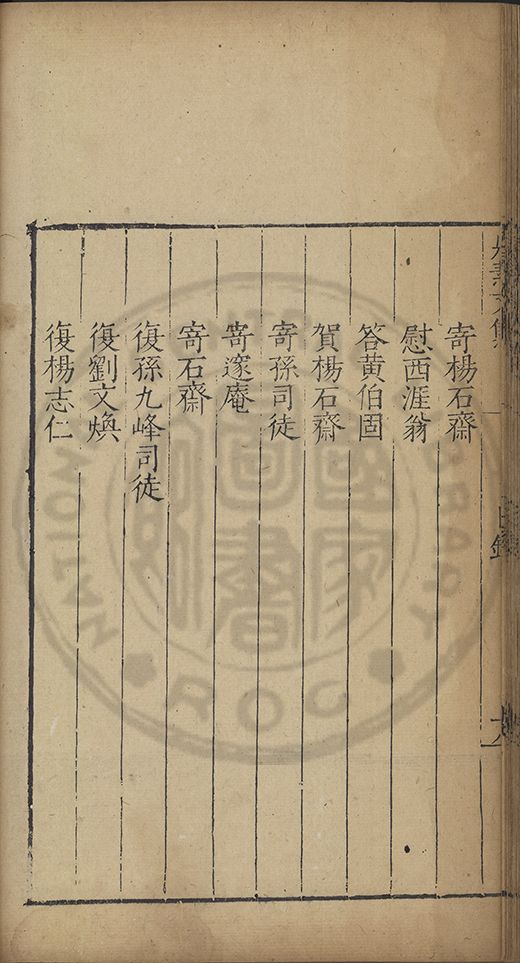 寄楊石齋
慰西涯翁
答黃伯固
賀楊石齋
寄孫司徒
寄邃庵
寄石齋
復孫九峰司徒
復劉文煥
復楊志仁
目錄